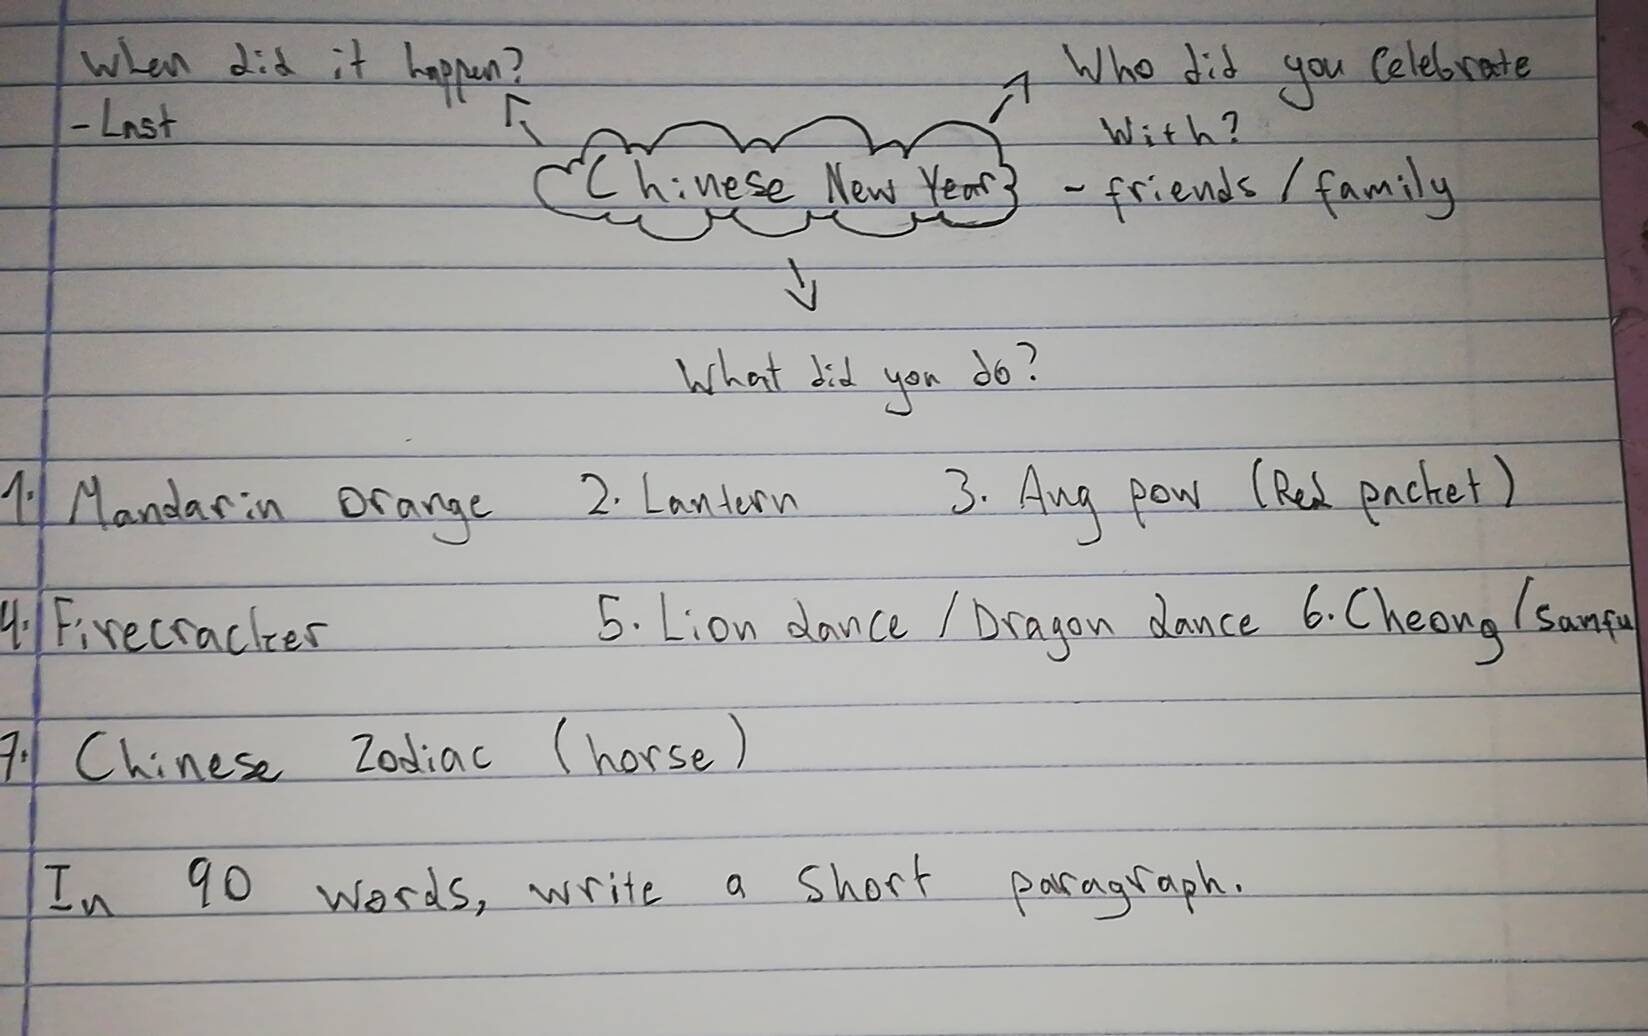 When did it happen?
- Last
Who did you Celebrate
With?
- friends / family
Chinese New Year
What did you do?
1. Mandarin Orange 2. Lantern 3. Ang pow (Red packet)
4. Firecracker 5. Lion dance / Dragon dance 6. Cheong / Samfu
7. Chinese Zodiac (horse)
In 90 words, write a short paragraph.